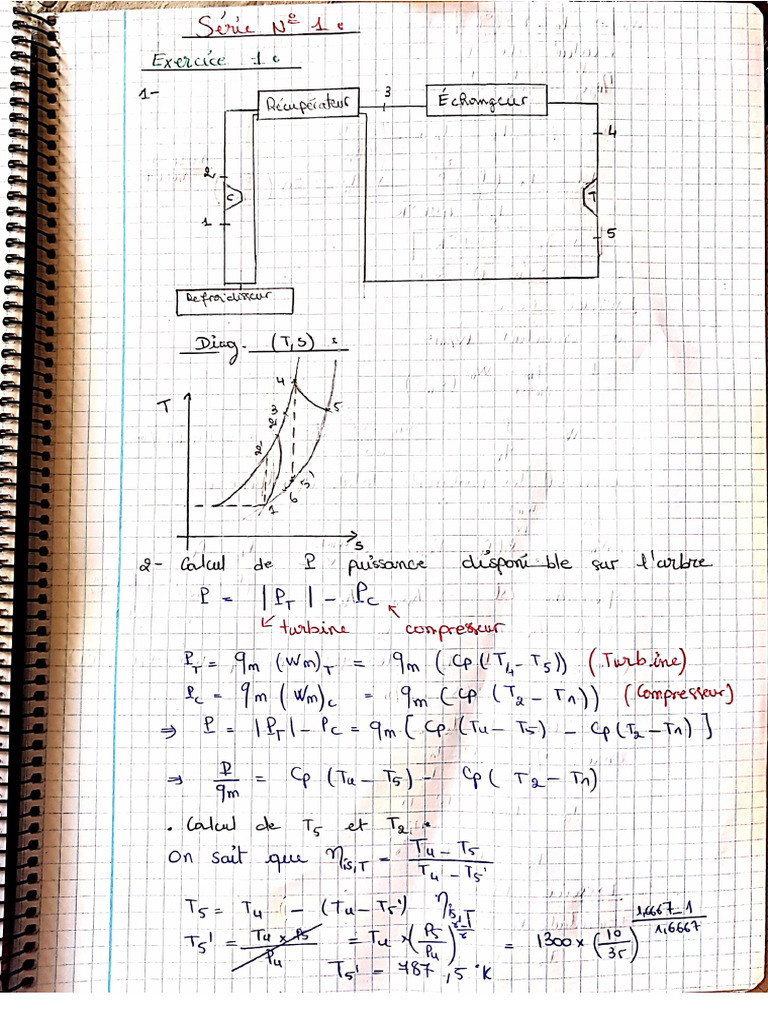 Série N° 1 :
Exercice 1 :
1-
Récupérateur
3
Échangeur
4
2
C
T
1
5
Refroidisseur
Diag. (T,S) :
4
T
3
5
2
2'
5'
6
1
S
2- Calcul de P puissance disponible sur l'arbre
P = |P_T| - P_C
turbine compresseur
P_T = q_m (W_m)_T = q_m (Cp (T_4 - T_5)) (Turbine)
P_C = q_m (W_m)_C = q_m (Cp (T_2 - T_1)) (Compresseur)
⇒ P = |P_T| - P_C = q_m [ Cp (T_4 - T_5) - Cp (T_2 - T_1) ]
⇒ P/q_m = Cp (T_4 - T_5) - Cp ( T_2 - T_1)
. Calcul de T_5 et T_2 :
On sait que η_is,T = (T_4 - T_5)/(T_4 - T_5')
T_5 = T_4 - (T_4 - T_5') η_is,T
T_5' = T_4 × P_5/P_4 = T_4 × (P_5/P_4)^(γ-1/γ) = 1300 × (10/35)^(1,6667-1/1,6667)
T_5' = 787,5 °K